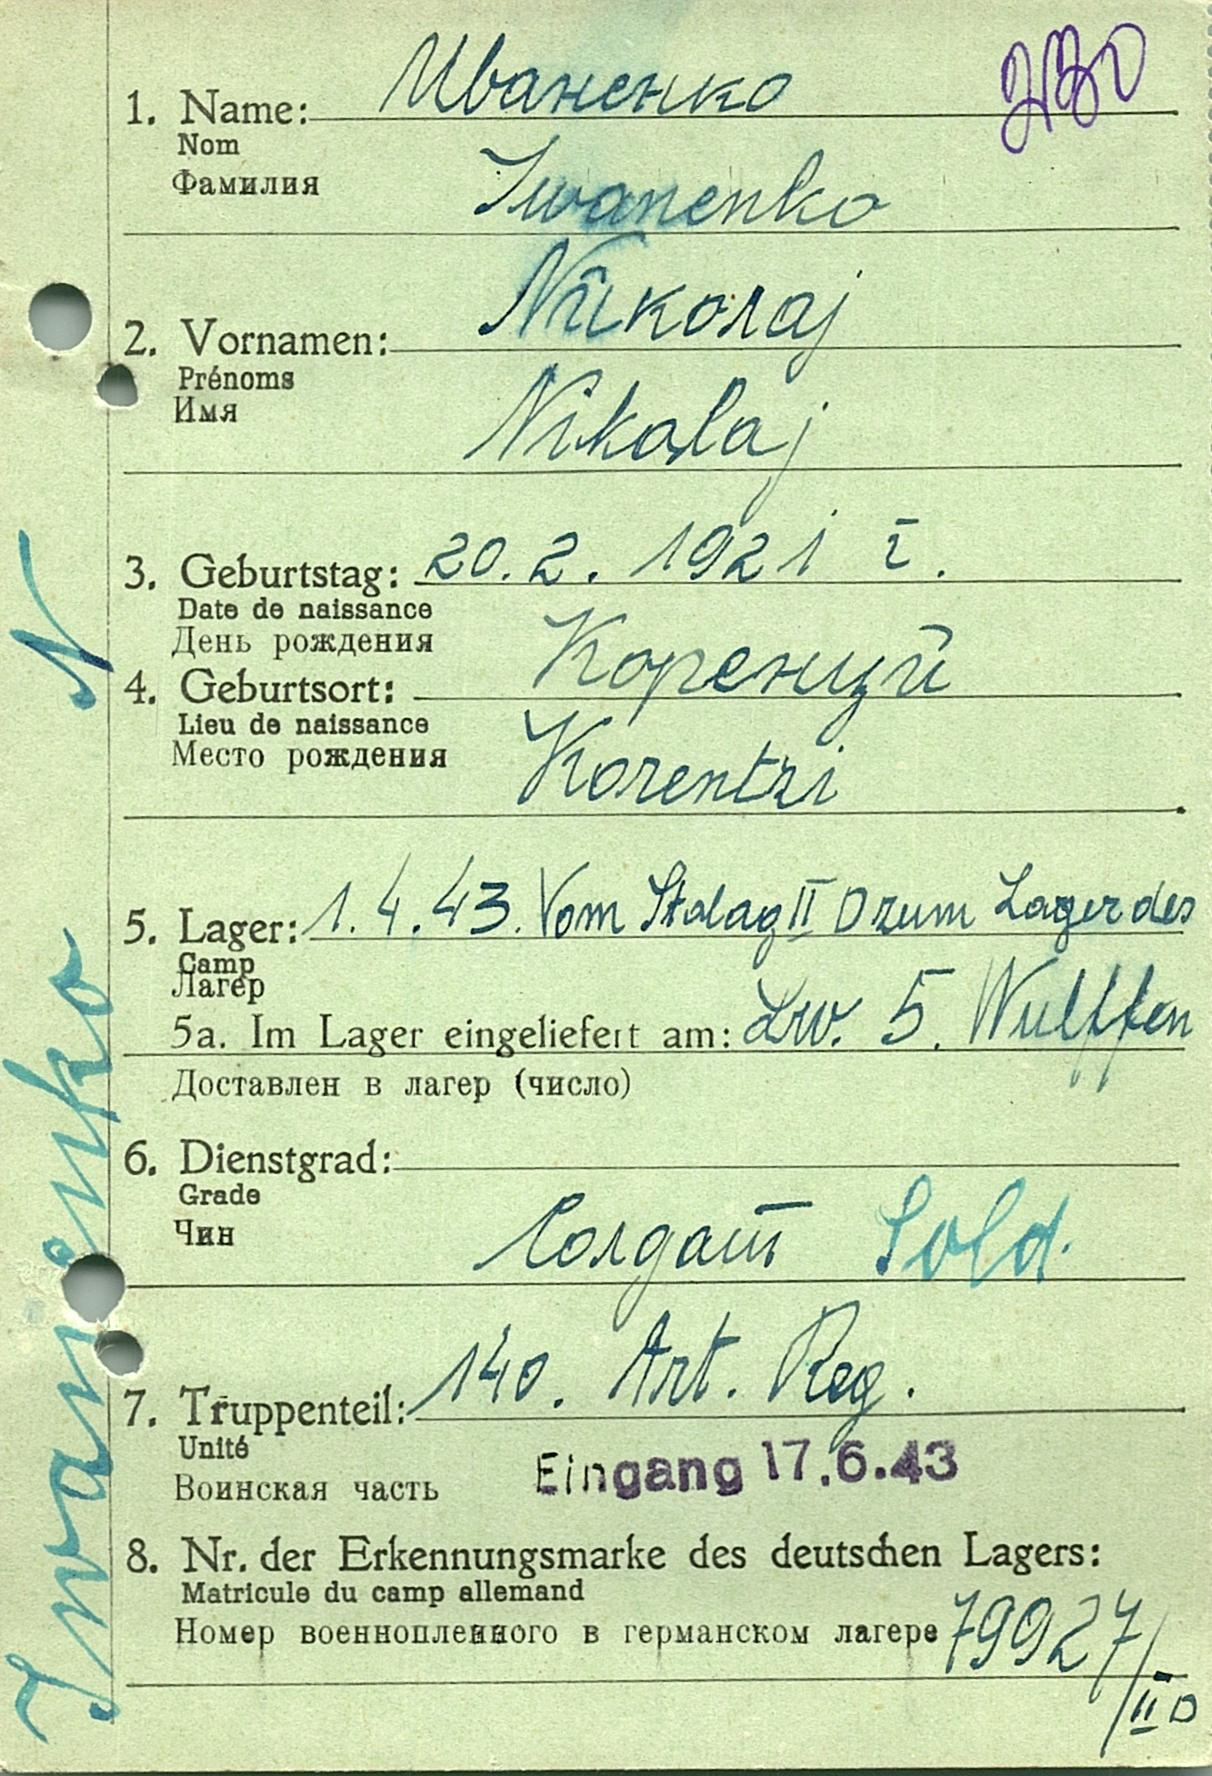 1. Name: Иваненко
Nom
Фамилия
Iwanenko
2. Vornamen: Николаj
Prénoms
Имя
Nikolaj
3. Geburtstag: 20. 2. 1921 г.
Date de naissance
День рождения
4. Geburtsort: Коренцй
Lieu de naissance
Место рождения
Korentzi
5. Lager: 1. 4. 43. Vom Stalag II D zum Lager des
Camp
Лагер
5a. Im Lager eingeliefert am: Lw. 5. Wulffen
Доставлен в лагер (число)
6. Dienstgrad:
Grade
Чин
Солдат Sold.
7. Truppenteil: 140. Art. Reg.
Unité
Воинская часть
Eingang 17.6.43
8. Nr. der Erkennungsmarke des deutschen Lagers:
Matricule du camp allemand
Номер военнопленного в германском лагере 79927/II D
Iwanenko N